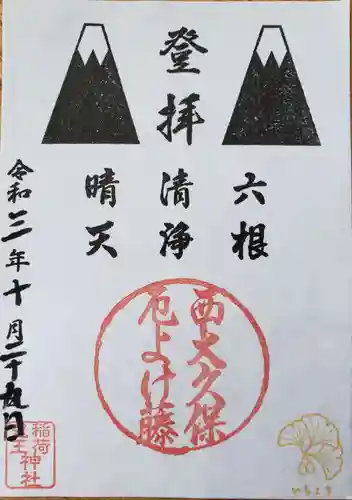 登拝
六根
清浄
晴天
令和三年十月二十九日
西大久保
厄よけ藤
稲荷
王神社
いちょう